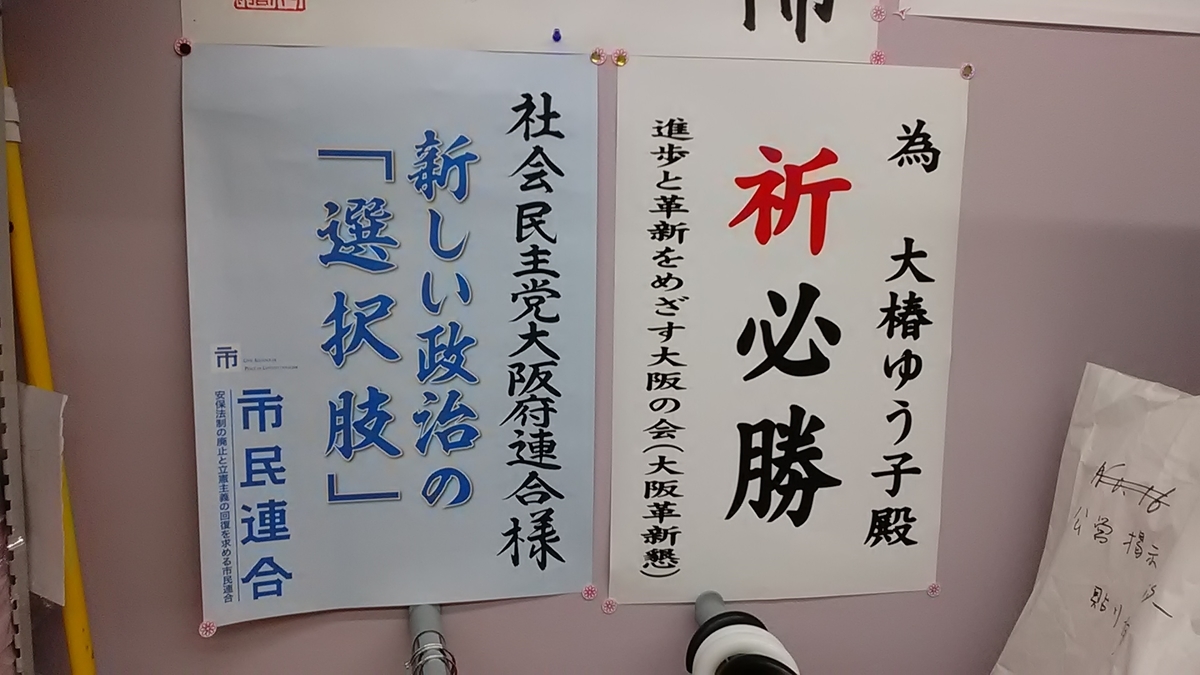 為 大椿ゆう子殿
祈必勝
進歩と革新をめざす大阪の会(大阪革新懇)
社会民主党大阪府連合様
新しい政治の
「選択肢」
市
市民連合
安保法制の廃止と立憲主義の回復を求める市民連合
公営掲示
貼り